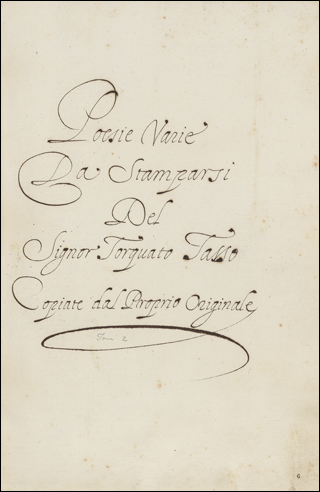 Poesie Varie
Da Stamparsi
Del
Signor Torquato Tasso
Copiate dal Proprio Originale